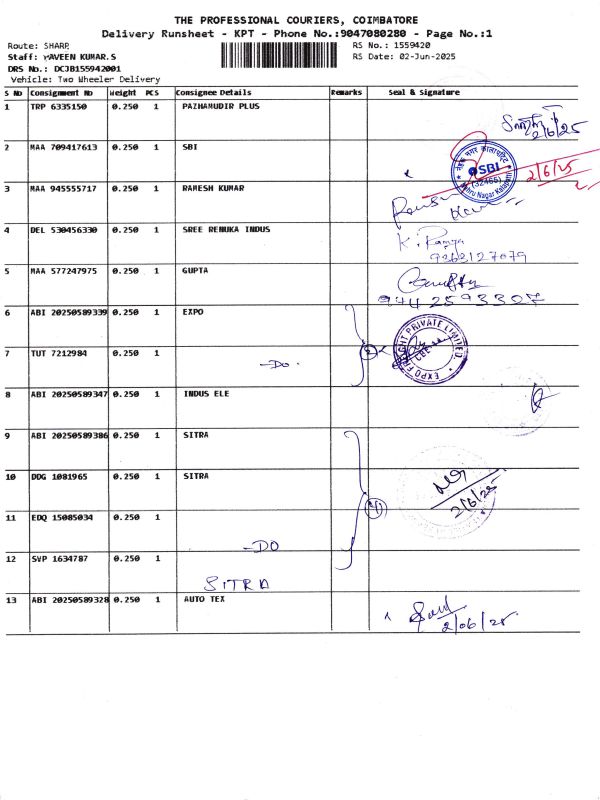 THE PROFESSIONAL COURIERS, COIMBATORE
Delivery Runsheet - KPT - Phone No.:9047080280 - Page No.:1
Route: SHARP
RS No.: 1559420
Staff: PRAVEEN KUMAR.S
RS Date: 02-Jun-2025
DRS No.: DCJB155942001
Vehicle: Two Wheeler Delivery
S No Consignment No Weight PCS Consignee Details Remarks Seal & Signature
1 TRP 6335150 0.250 1 PAZHAMUDIR PLUS
2/6/25
2 MAA 709417613 0.250 1 SBI
SBI
(32466)
Nehru Nagar Kalapatti
2/6/25
3 MAA 945555717 0.250 1 RAMESH KUMAR
4 DEL 530456330 0.250 1 SREE RENUKA INDUS
K. Ramya
9262127079
5 MAA 577247975 0.250 1 GUPTA
944 2593307
6 ABI 20250589339 0.250 1 EXPO
EXPO FREIGHT PRIVATE LIMITED
7 TUT 7212984 0.250 1
-DO-
2
8 ABI 20250589347 0.250 1 INDUS ELE
9 ABI 20250589386 0.250 1 SITRA
10 DDG 1081965 0.250 1 SITRA
2/6/25
11 EDQ 15085034 0.250 1
-DO
4
12 SVP 1634787 0.250 1
SITRA
13 ABI 20250589328 0.250 1 AUTO TEX
2/06/25